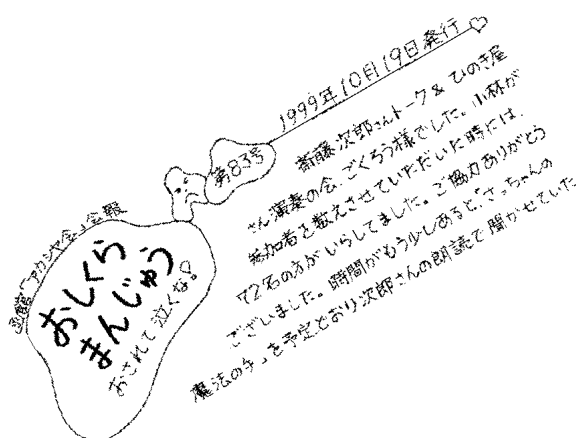 函館「アカシヤ会」会報
おしくら
まんじゅう
おされて泣くな♡
第83号
1999年10月19日発行
斎藤次郎さんトーク & ひのき屋
さん演奏の会、ごくろう様でした。小林が
参加者を数えさせていただいた時には、
72名の方がいらしてました。ご協力ありがとう
ございました。時間がもう少しあると、「さっちゃんの
魔法の手」を予定どおり次郎さんの朗読で聞かせていた